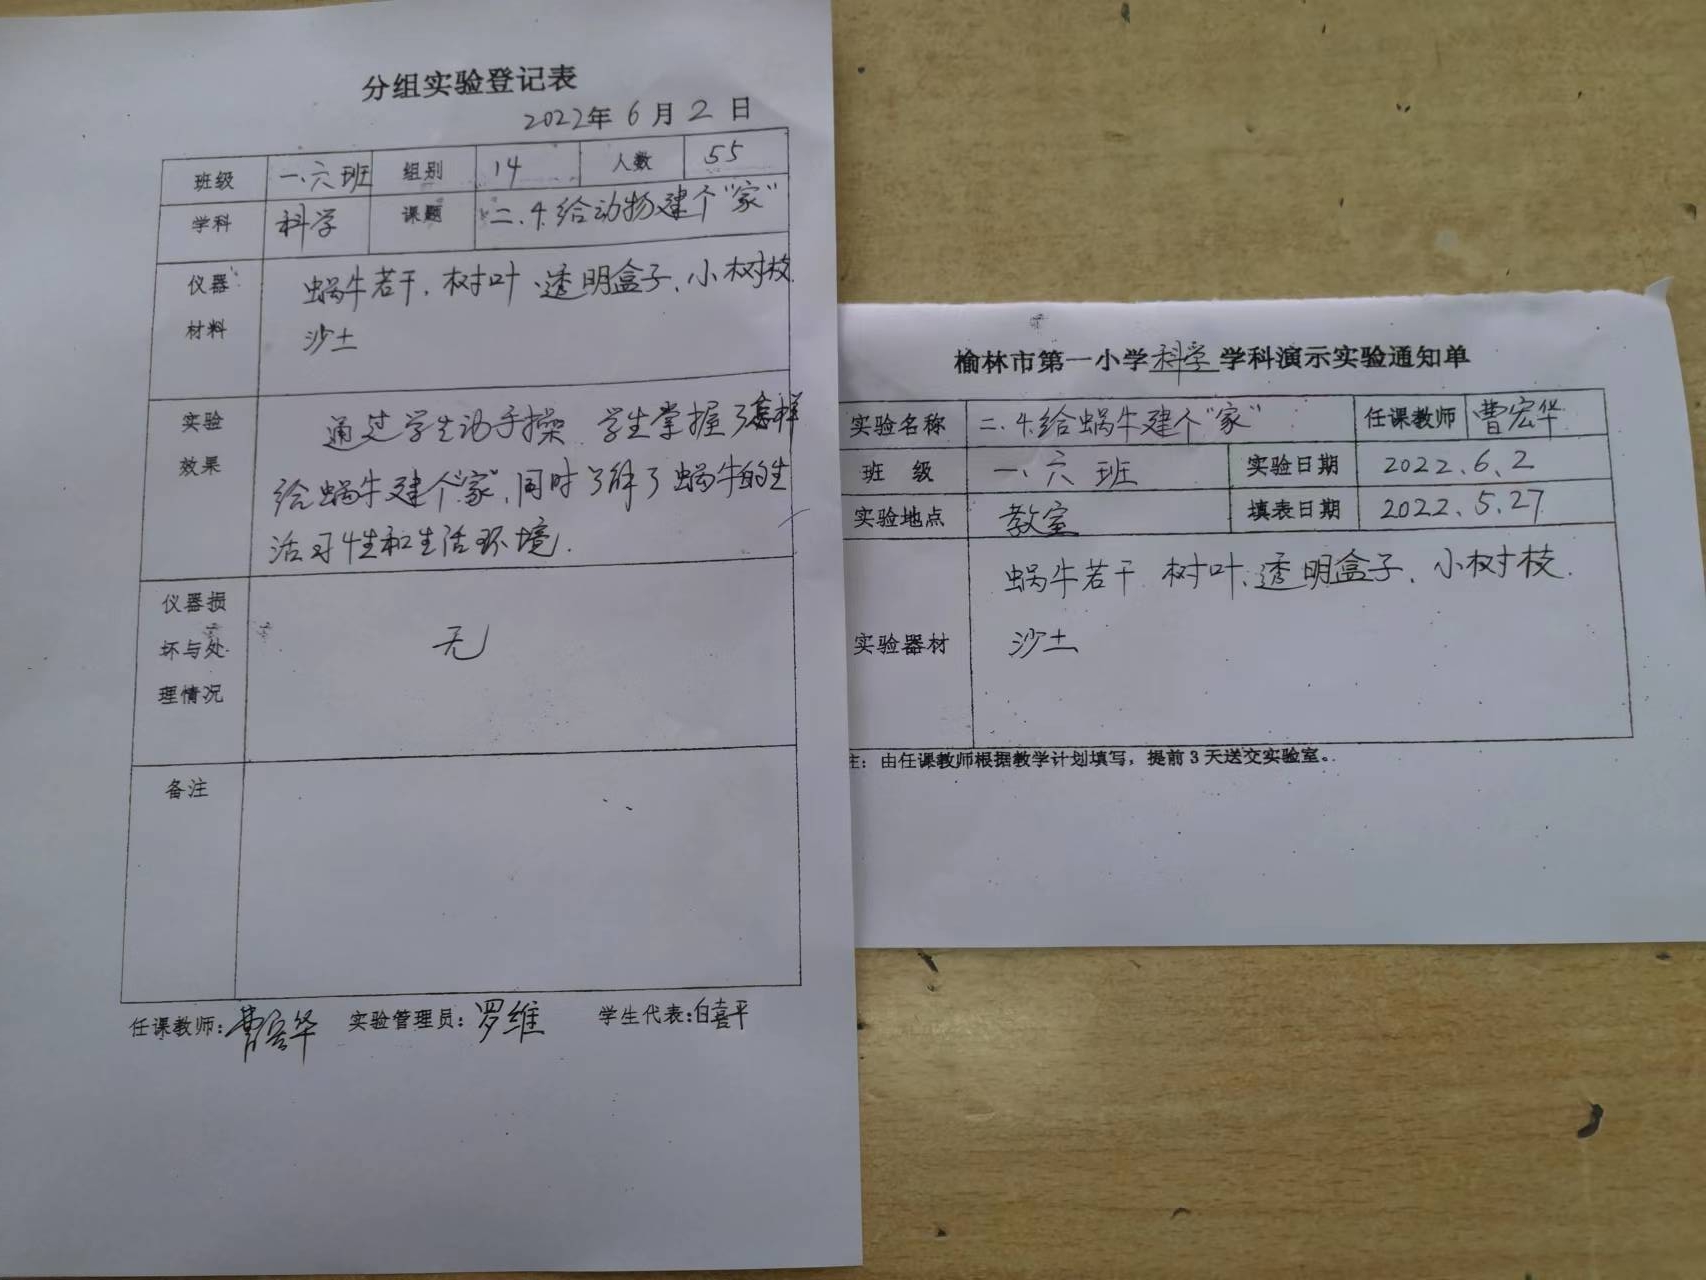 分组实验登记表
2022年 6 月 2 日
班级 一.六班 组别 14 人数 55
学科 科学 课题 二.4.给动物建个“家”
仪器 材料
蜗牛若干、树叶、透明盒子、小树枝
沙土
实验 效果
通过学生动手操 学生掌握了怎样
给蜗牛建个“家”,同时了解了蜗牛的生
活习性和生活环境.
仪器损
坏与处
理情况
无
备注
任课教师:曹宏华 实验管理员:罗维 学生代表:白喜平
榆林市第一小学科学学科演示实验通知单
实验名称 二.4.给蜗牛建个“家” 任课教师 曹宏华
班 级 一.六班 实验日期 2022.6.2
实验地点 教室 填表日期 2022.5.27
实验器材
蜗牛若干 树叶、透明盒子、小树枝.
沙土
注：由任课教师根据教学计划填写，提前3天送交实验室。